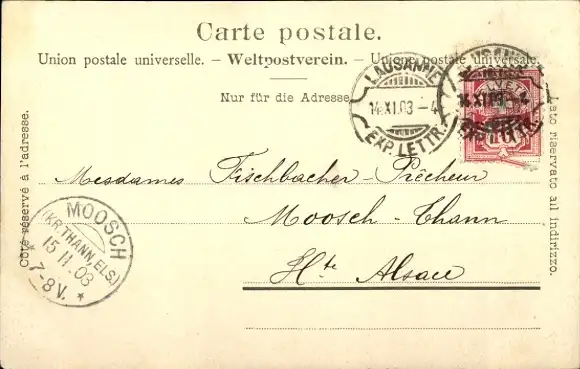 Carte postale.
Union postale universelle. – Weltpostverein. – Unione postale universale.
Nur für die Adresse.
LAUSANNE
14.XI.03 – 4
EXP. LETTR.
LAUSANNE
14.XI.03 – 4
EXP. LETTR.
Côté réservé à l'adresse.
Lato riservato all indirizzo.
Mesdames Fischbacher-Prêcheur
Moosch-Thann
Hte Alsace
MOOSCH
(KR. THANN, ELS.)
15 11 03
* 7-8 V. *